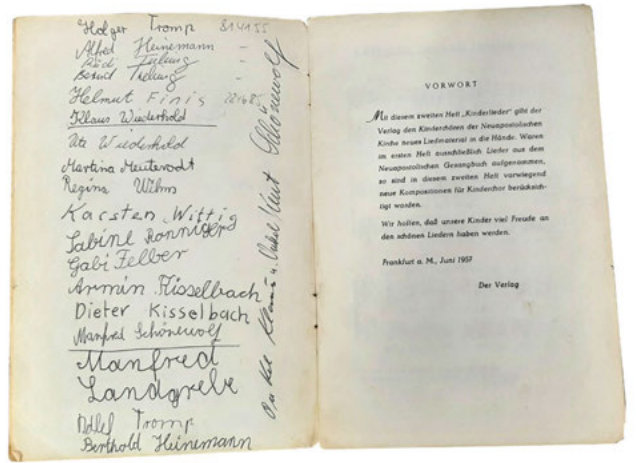 Holger Tromp 814155
Alfred Heinemann "
Rüdi "
Bernd "
Helmut Finis
Klaus Wiederhold
Ute Wiederhold
Martina Meuterodt
Regina Wilms
Karsten Wittig
Sabine Ronniger
Gabi Felber
Armin Kisselbach
Dieter Kisselbach
Manfred Schönewolf
Manfred
Landgrebe
Detlef Tromp
Berthold Heinemann
Onkel Klaus u. Onkel Kurt Schönewolf
VORWORT
Mit diesem zweiten Heft „Kinderlieder" gibt der
Verlag den Kinderchören der Neuapostolischen
Kirche neues Liedmaterial in die Hände. Waren
im ersten Heft ausschließlich Lieder aus dem
Neuapostolischen Gesangbuch aufgenommen,
so sind in diesem zweiten Heft vorwiegend
neue Kompositionen für Kinderchor berücksich-
tigt worden.
Wir hoffen, daß unsere Kinder viel Freude an
den schönen Liedern haben werden.
Frankfurt a. M., Juni 1957
Der Verlag